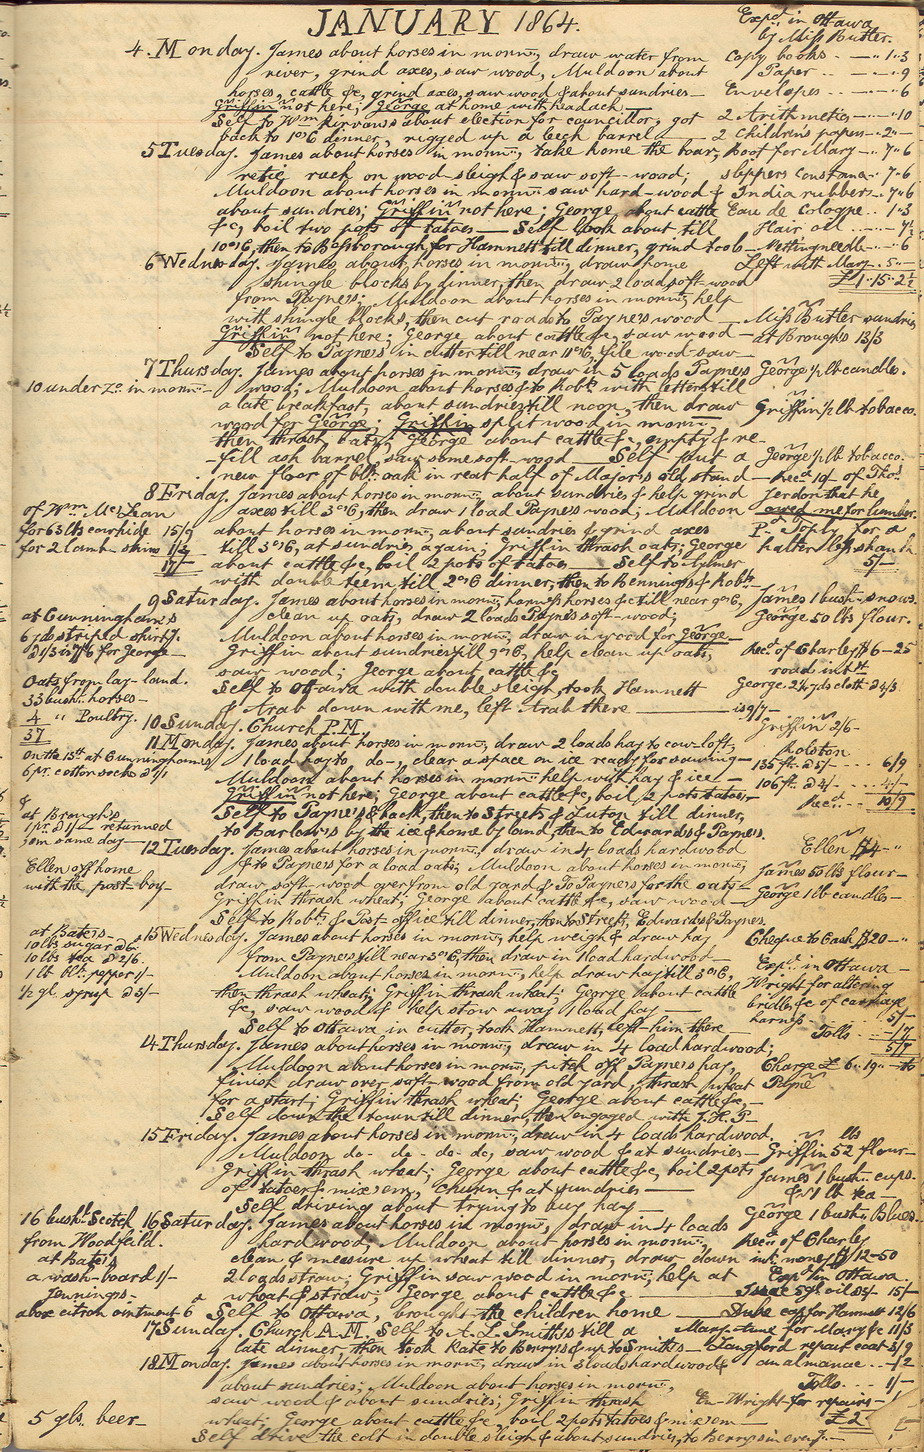 JANUARY 1864.
Expd in Ottawa
by Miss Butler.
4. Monday. James about horses in morng, draw water from
river, grind axes, saw wood, Muldoon about
horses, cattle &c, grind axes, saw wood & about sundries—
Griffin not here; George at home with headach—
Self to Wm Kirvans about election for councillor, got
back to 1 o'c dinner, rigged up a leech barrel—
Copy books - —" 1"3
Paper - - — " - "9
Envelopes - - — " - "6
2 Arithmetics — "10
2 childrens papers - 2"—
5 Tuesday. James about horses in mornng, take home the boar,
retie rack on wood sleigh & saw soft-wood;
Muldoon about horses in mornng saw hard-wood &
about sundries; Griffin not here; George about cattle
&c, boil two pots of tatoes— Self look about till
10 o'c, then to Bessborough for Hamnett till dinner, grind tools—
Boot for Mary - " 7"6
slippers Constana - 7"6
India rubbers - " 7"6
Eau de Cologne - - 1"3
Hair oil - - — " 7½
Netting needle — " - "6
Left with Mary - 5"—
£1"15"2½
6 Wednesday. James about horses in mornng, draw home
shingle blocks by dinner, then draw 2 load soft-wood
from Paynes; Muldoon about horses in mornng, help
with shingle blocks, then cut roads to Paynes wood
Griffin not here; George about cattle &c, saw wood—
Self to Paynes in cutter till near 11 o'c, file wood-saw—
Miss Butler sundries
at Broughs 13/3
7 Thursday. James about horses in mornng, draw in 5 loads Paynes
wood; Muldoon about horses & to Robts with letters till
a late breakfast, about sundries till noon, then draw
wood for George; Griffin split wood in mornng
then thrash oats; George about cattle &c, empty & re-
-fill ash barrel, saw some soft-wood— Self put a
new floor of blk oak in rear half of Majors old stand—
10 under Zo in mornng—
George ½ lb candles.
Griffin ½ lb tobacco.
George ½ lb tobacco.
Recd 1/9 of Thos
Jerdon that he
owed me for lumber.
8 Friday. James about horses in mornng about sundries & help grind
axes till 3 o'c, then draw 1 load Paynes wood; Muldoon
about horses in mornng, about sundries & grind axes
till 3 o'c, at sundries again; Griffin thrash oats; George
about cattle &c, boil 2 pots of tatoes— Self to Aylmer
with double teem till 2 o'c dinner, then to Bennings & Robts—
of Wm McLean
for 63 lbs cowhide 15/9
for 2 lamb skins 1/3
17/—
Pd Toply for a
halter
5/—
9 Saturday. James about horses in mornng, harness horses &c till near 9 o'c,
clean up oats, draw 2 loads Paynes soft-wood;
Muldoon about horses in mornng, draw in wood for George—
Griffin about sundries till 9 o'c, help clean up oats,
saw wood; George about cattle &c
Self to Ottawa with double sleigh, took Hamnett
& Arab down with me, left Arab there—
at Cunninghams
6 yds striped shirtg.
@ 1/3 is 7/6 for George—
Oats from lay-land.
33 bush. horses—
4 " Poultry.
37
James 1 bush snows.
George 50 lbs flour.
Recd of Charley $6-25
road intst
George 2¼ yds cloth @ 4/3
is 9/7—
10 Sunday. Church P.M.
Griffin 2/6—
11 Monday. James about horses in mornng, draw 2 loads hay to cow-loft,
1 load hay to do-, clear a space on ice ready for sawing—
Muldoon about horses in mornng help with hay & ice—
Griffin not here; George about cattle &c, boil 2 pots tatoes—
Self to Paynes & back, then to Streets & Lutons till dinner,
to Barlow's by the ice & home by land, then to Edwards & Paynes.
on the 15th at Cunninghams
6 pr. cotton socks @ 1/1
&
at Broughs
1 pr. @ 1/— returned
'em same day—
Rolston
135 ft. @ 5/— - - - 6/9
106 ft. @ 4/— - - - 4/—
Recd - - 10/9
12 Tuesday. James about horses in mornng, draw in 4 loads hardwood
& to Paynes for a load oats; Muldoon about horses in mornng,
draw soft-wood over from old yard & To Paynes for the oats—
Griffin thrash wheat; George about cattle &c, saw wood—
Self to Robts & Post-office till dinner, then to Streets, Edwards & Paynes.
Ellen off home
with the post-boy—
Ellen $4-"
James 50 lbs flour—
George 1 lb candles—
13 Wednesday. James about horses in mornng, help weigh & draw hay
from Paynes till near 3 o'c, then draw in 1 load hardwood—
Muldoon about horses in mornng, help draw hay till 3 o'c,
then thrash wheat; Griffin thrash wheat; George about cattle
&c, saw wood & help stow away 1 load hay—
Self to Ottawa in cutter, took Hamnett, left him there—
at Bates—
10 lbs sugar @ 6d
10 lbs tea @ 2/6.
1 lb blk. pepper 1/—
½ gl. syrup @ 5/—
Cheque to Cash $20—"
Expd in Ottawa—
Wright for altering
bridles &c of carriage
harness - - - - 5/—
Tolls - - -/7
5/7
14 Thursday. James about horses in mornng, draw in 4 load hardwood;
Muldoon about horses in mornng, pitch off Paynes hay,
finish draw over soft-wood from old yard, thrash wheat
for a start; Griffin thrash wheat; George about cattle &c,—
Self down the town till dinner, then engaged with J.H.P—
Charge £ 6"19"— to
Payne
15 Friday. James about horses in mornng, draw in 4 loads hardwood.
Muldoon do- do- do- do, saw wood & at sundries—
Griffin thrash wheat; George about cattle &c, boil 2 pots
of tatoes & mix 'em, churn & at sundries—
Self driving about trying to buy hay—
lbs
Griffin 52 flour—
James 1 bush. cups.
& 1 lb tea—
George 1 bush. Blues.
16 Saturday. James about horses in mornng, draw in 4 loads
hard wood, Muldoon about horses in mornng,
clean & measure up wheat till dinner, draw down
2 loads straw; Griffin saw wood in mornng, help at
wheat & straw; George about cattle &c—
Self to Ottawa, brought the children home—
16 bushl Scotch
from Woodfeild.
at Bates
a wash-board 1/—
Jennings—
a box citron ointment 6
Recd of Charley
int. money $12-50
Expd in Ottawa.
5 gs oil @ 3/- 15/—
Duke cap for Hamnett 12/6
17 Sunday. Church A.M. Self to A. L. Smith's till a
late dinner, then took Kate to Berrys & up to Smiths—
for Mary &c 11/3
Langford repair coat 3/9
18 Monday. James about horses in mornng, draw in 3 loads hardwood &
about sundries; Muldoon about horses in mornng,
saw wood & about sundries; Griffin thrash
wheat; George about cattle &c, boil 2 pots tatoes & mix 'em—
Self drive the colt in double sleigh & about sundries, to Berrys in eveng—
5 gls. beer—
an almanac - - -/2
Tolls - - - 1/—
Wright for repairs—
£2